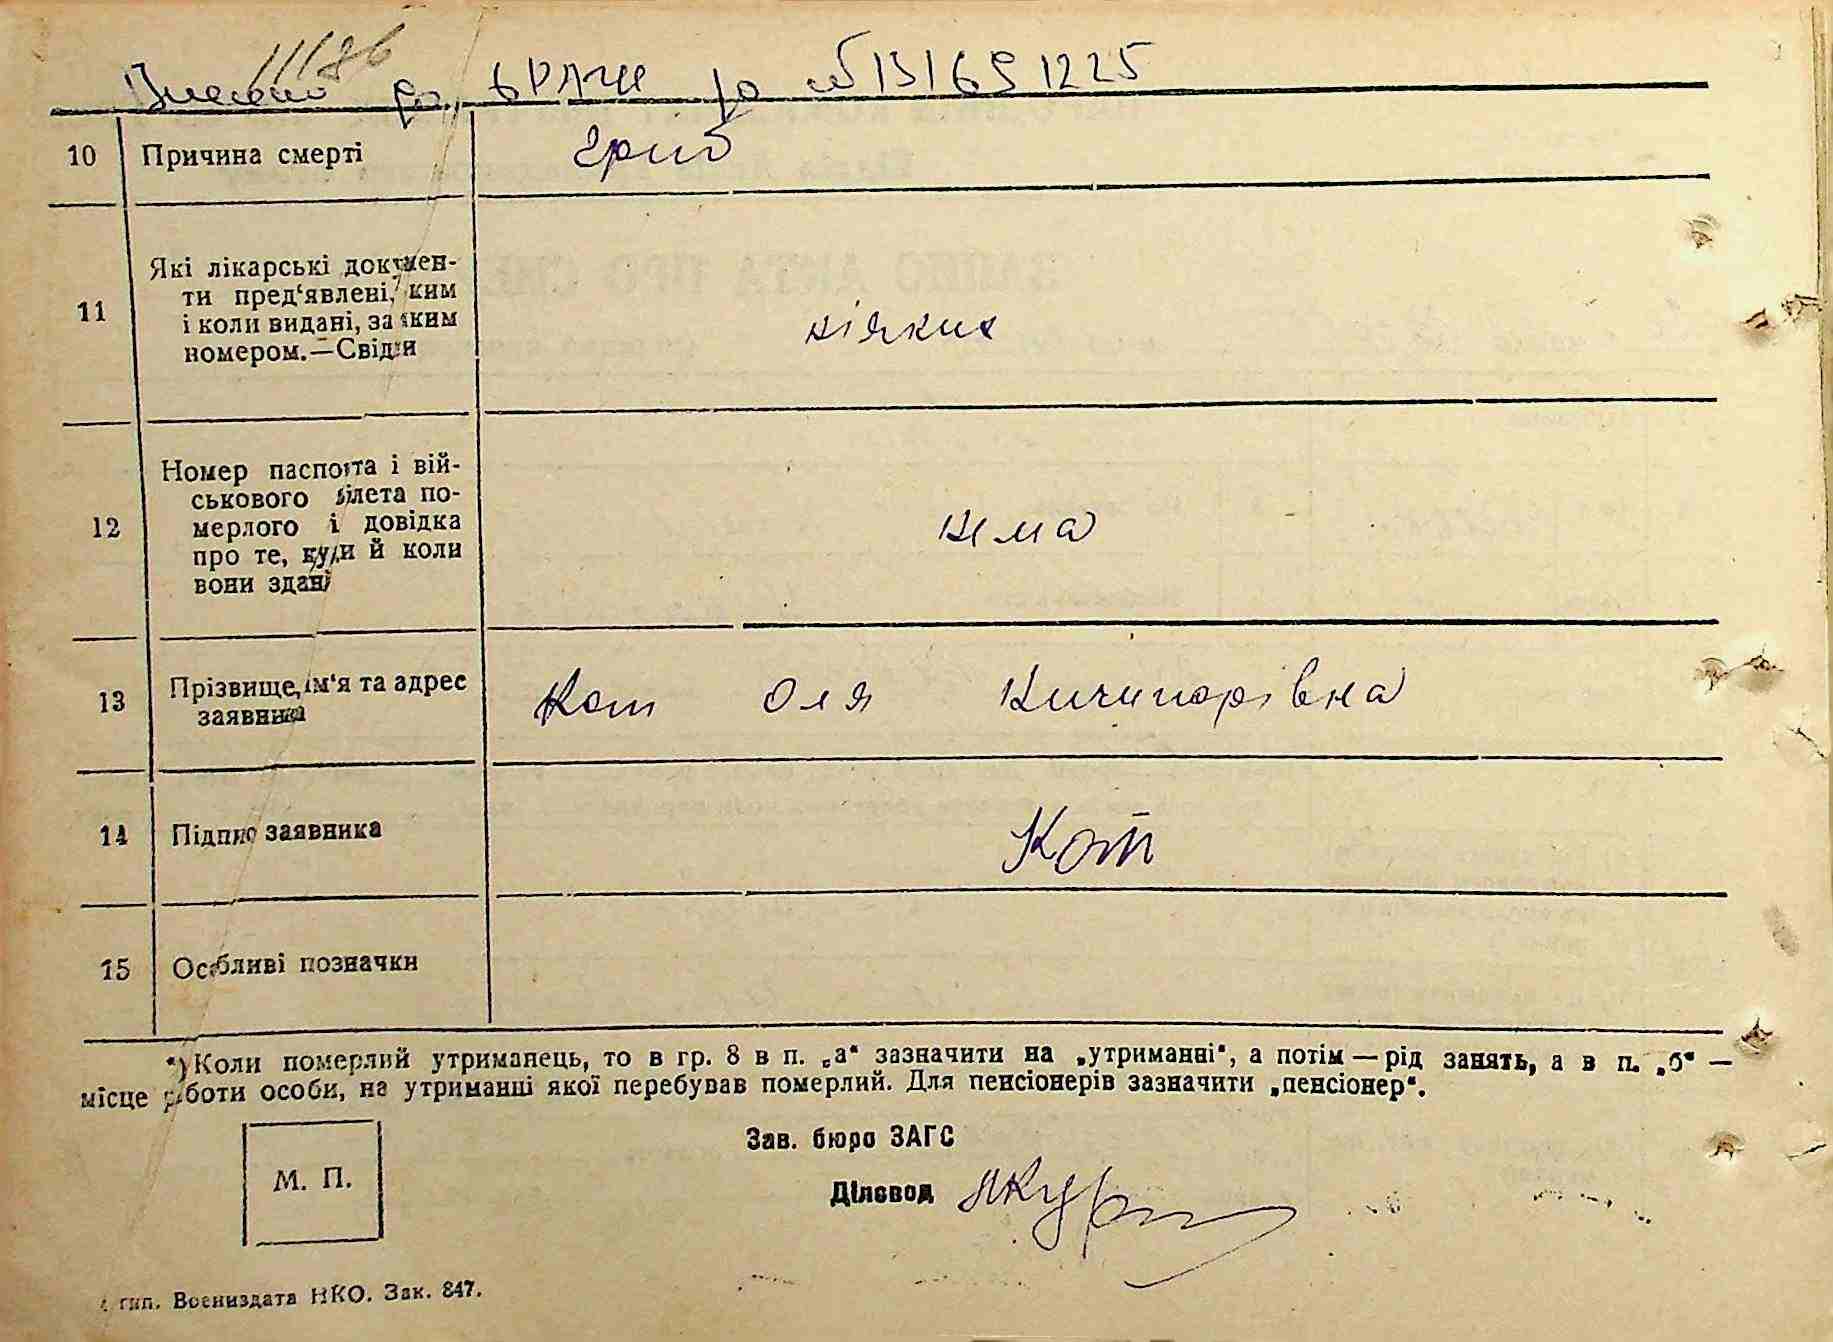 11186
Внесено до ДРАЦС за № 131651225
10 Причина смерті грип
11 Які лікарські докумен-
ти пред‘явлені, ким
і коли видані, за яким
номером.—Свідки
ніяких
12 Номер паспорта і вій-
ськового білета по-
мерлого і довідка
про те, куди й коли
вони здані
нема
13 Прізвище, ім‘я та адрес
заявника
Кот Оля Кичипорівна
14 Підпис заявника Кот
15 Особливі позначки
*) Коли померлий утриманець, то в гр. 8 в п. „а“ зазначити на „утриманні“, а потім — рід занять, а в п. „б“ —
місце роботи особи, на утриманні якої перебував померлий. Для пенсіонерів зазначити „пенсіонер“.
Зав. бюро ЗАГС
М. П.
Діловод
тип. Воениздата НКО. Зак. 847.